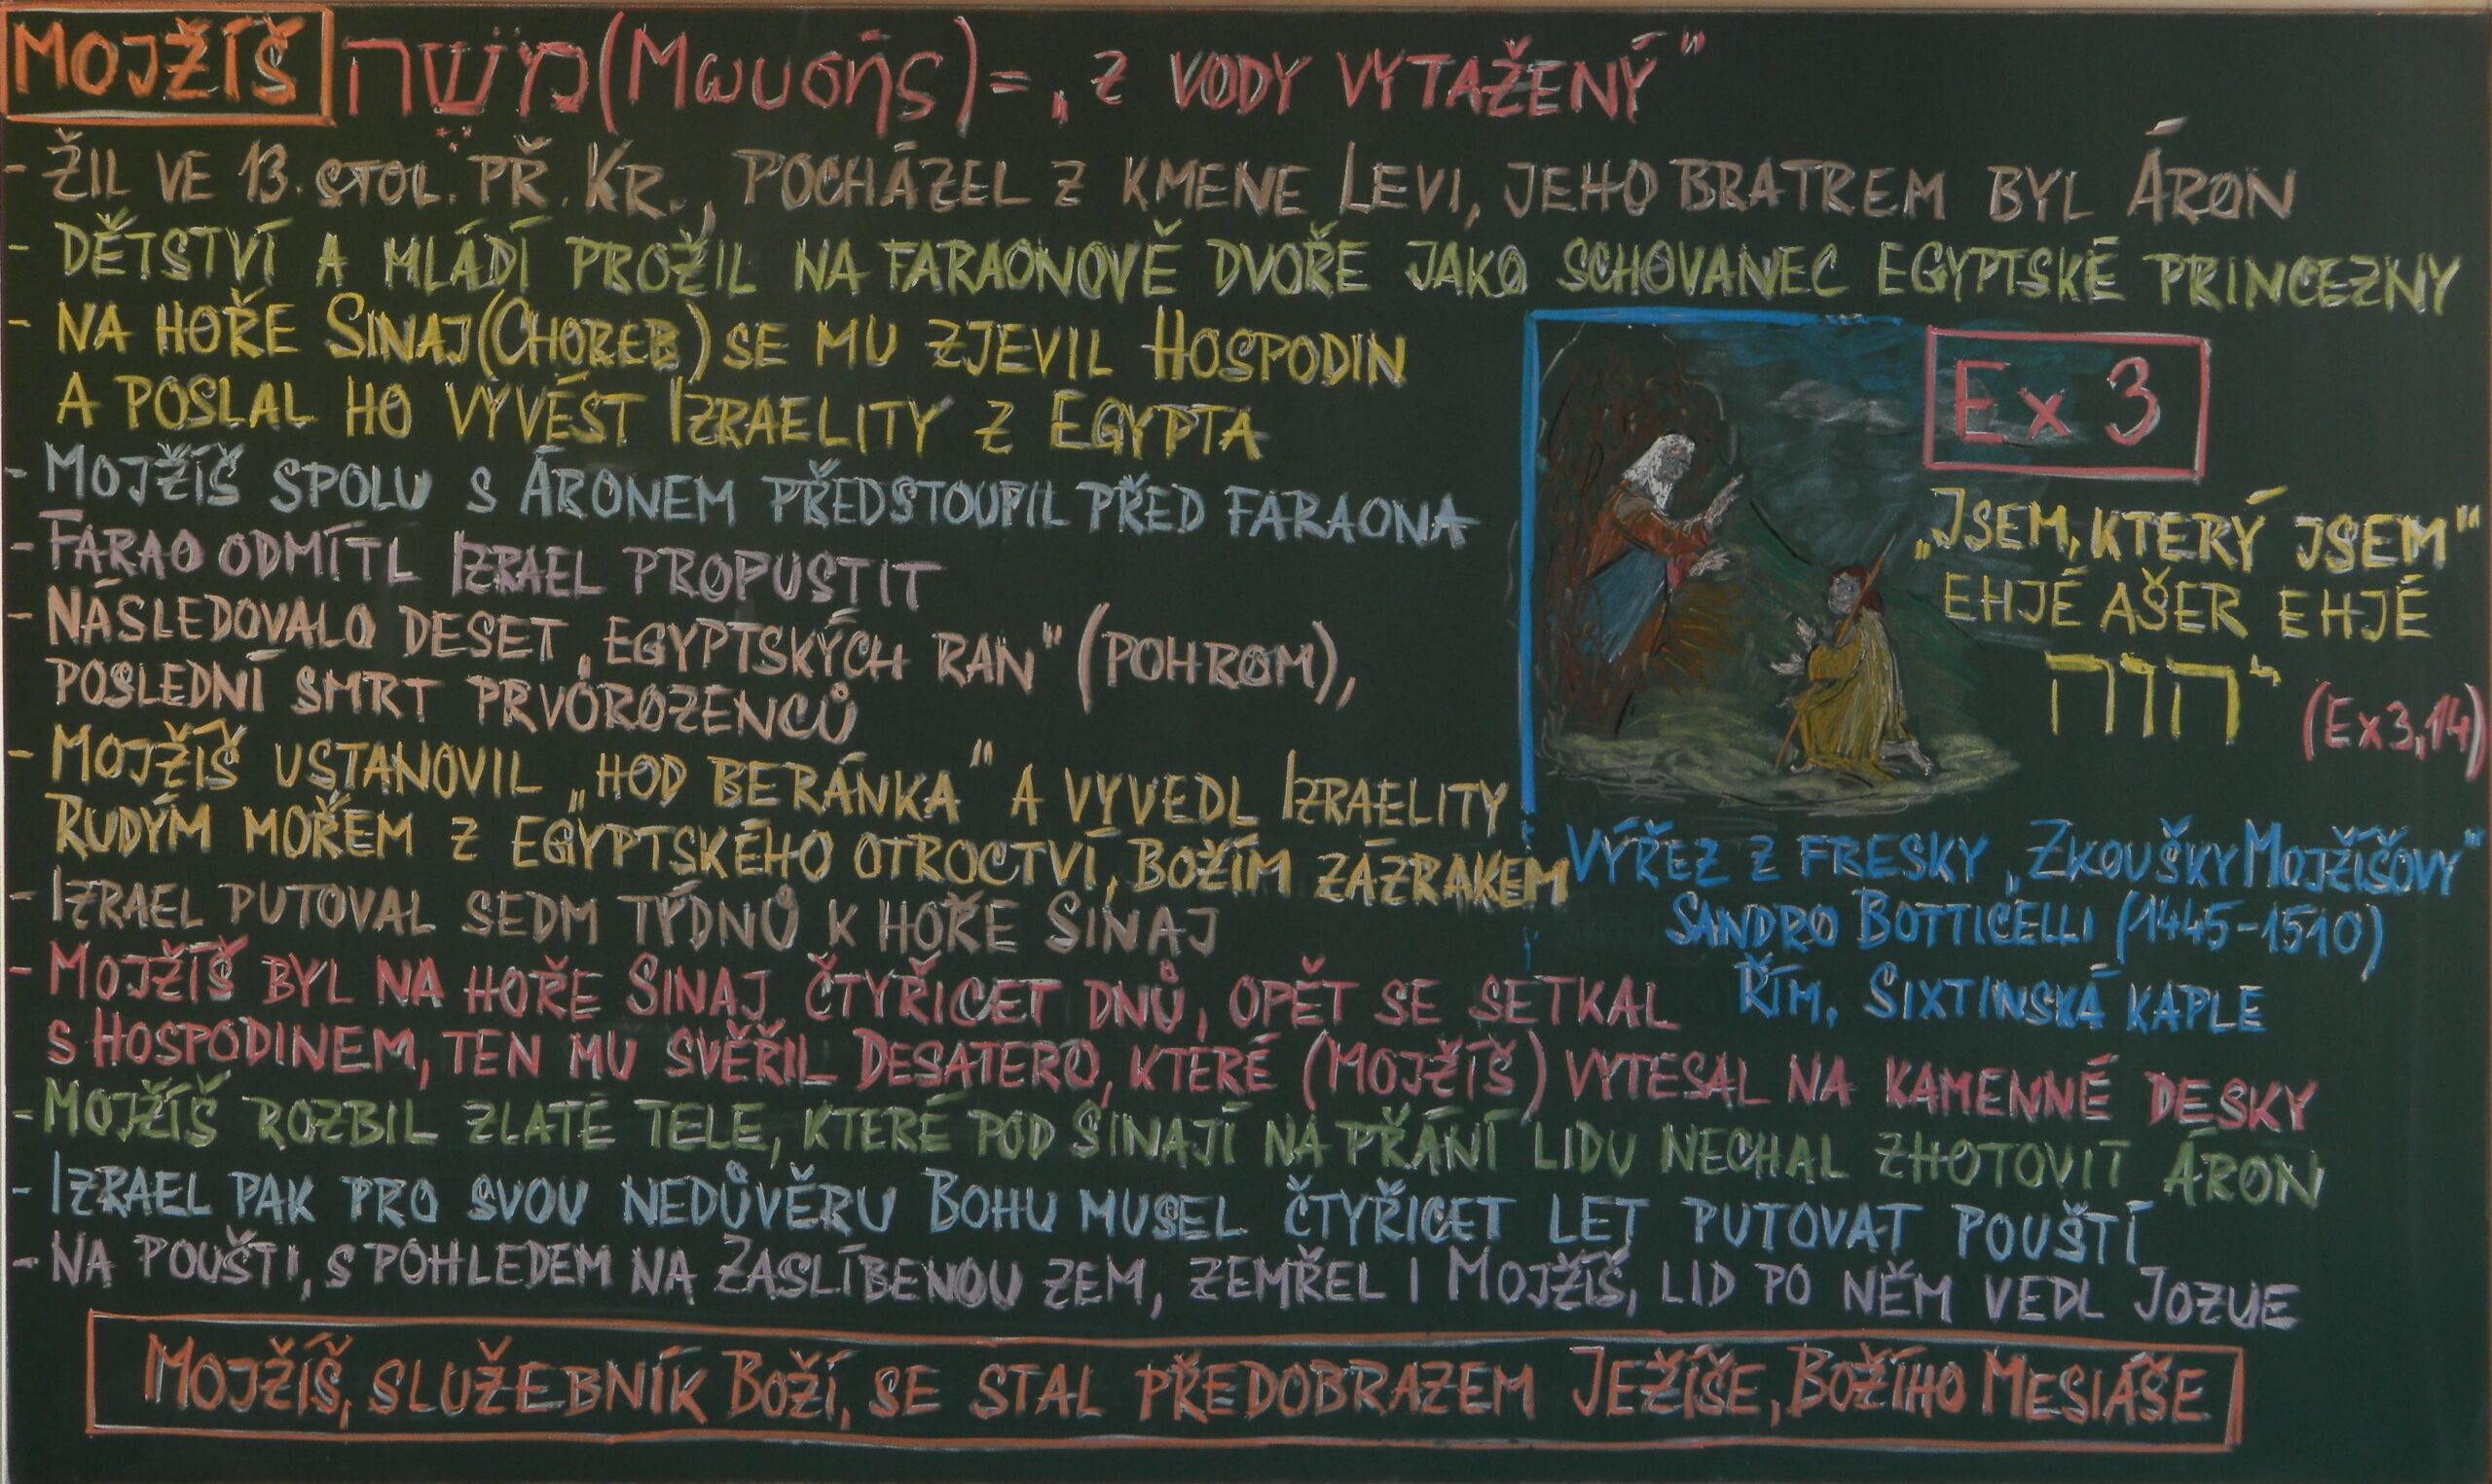 MOJŽÍŠ מֹשֶׁה (Μωυσῆς) = „Z VODY VYTAŽENÝ"
- ŽIL VE 13. STOL. PŘ. KR., POCHÁZEL Z KMENE LEVI, JEHO BRATREM BYL ÁRON
- DĚTSTVÍ A MLÁDÍ PROŽIL NA FARAONOVĚ DVOŘE JAKO SCHOVANEC EGYPTSKÉ PRINCEZNY
- NA HOŘE SINAJ (CHOREB) SE MU ZJEVIL HOSPODIN
A POSLAL HO VYVÉST IZRAELITY Z EGYPTA
- MOJŽÍŠ SPOLU S ÁRONEM PŘEDSTOUPIL PŘED FARAONA
- FARAO ODMÍTL IZRAEL PROPUSTIT
- NÁSLEDOVALO DESET „EGYPTSKÝCH RAN" (POHROM),
POSLEDNÍ SMRT PRVOROZENCŮ
- MOJŽÍŠ USTANOVIL „HOD BERÁNKA" A VYVEDL IZRAELITY
RUDÝM MOŘEM Z EGYPTSKÉHO OTROCTVÍ, BOŽÍM ZÁZRAKEM
- IZRAEL PUTOVAL SEDM TÝDNŮ K HOŘE SINAJ
- MOJŽÍŠ BYL NA HOŘE SINAJ ČTYŘICET DNŮ, OPĚT SE SETKAL
S HOSPODINEM, TEN MU SVĚŘIL DESATERO, KTERÉ (MOJŽÍŠ) VYTESAL NA KAMENNÉ DESKY
- MOJŽÍŠ ROZBIL ZLATÉ TELE, KTERÉ POD SINAJÍ NA PŘÁNÍ LIDU NECHAL ZHOTOVIT ÁRON
- IZRAEL PAK PRO SVOU NEDŮVĚRU BOHU MUSEL ČTYŘICET LET PUTOVAT POUŠTÍ
- NA POUŠTI, S POHLEDEM NA ZASLÍBENOU ZEM, ZEMŘEL I MOJŽÍŠ, LID PO NĚM VEDL JOZUE
MOJŽÍŠ, SLUŽEBNÍK BOŽÍ, SE STAL PŘEDOBRAZEM JEŽÍŠE, BOŽÍHO MESIÁŠE
Ex 3
„JSEM, KTERÝ JSEM"
EHJÉ AŠER EHJÉ
יהוה (Ex 3,14)
VÝŘEZ Z FRESKY „ZKOUŠKY MOJŽÍŠOVY"
SANDRO BOTTICELLI (1445-1510)
ŘÍM, SIXTINSKÁ KAPLE